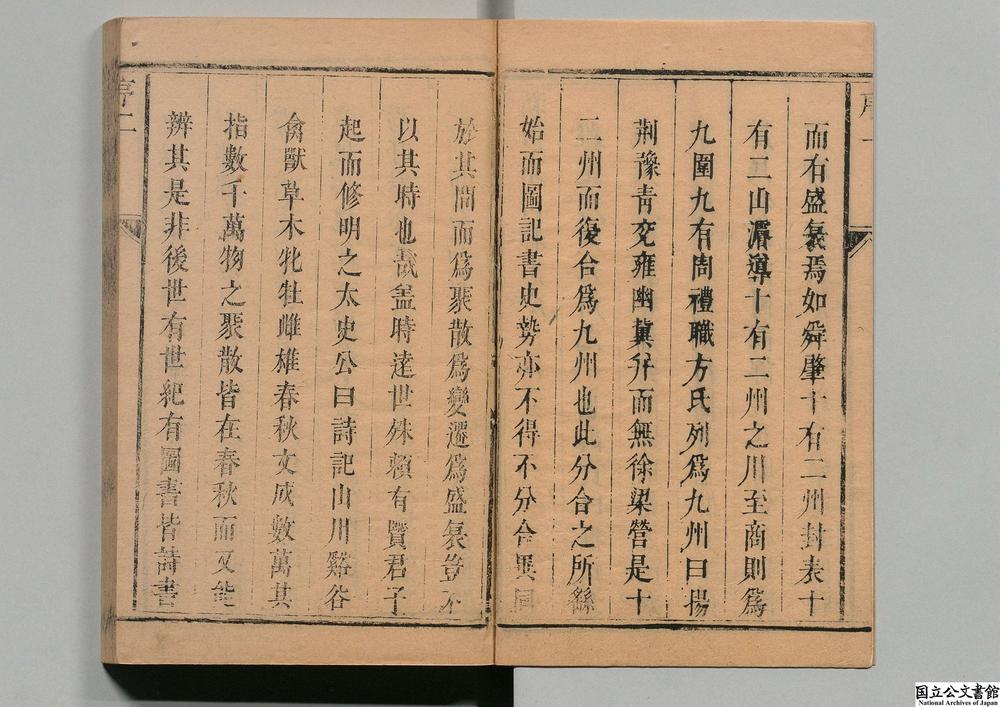 而右盛衰焉如舜肇十有二州封表十
有二山濬導十有二州之川至商則爲
九圍九有周禮職方氏列爲九州曰揚
荆豫青兗雍幽冀并而無徐梁營是十
二州而復合爲九州也此分合之所繇
始而圖記書史勢亦不得不分合異同
於其間而爲聚散爲變遷爲盛衰豈不
以其時也哉盖時逹世殊賴有賢君子
起而修明之太史公曰詩記山川谿谷
禽獸草木牝牡雌雄春秋文成數萬其
指數千萬物之聚散皆在春秋而又能
辨其是非後世有世紀有圖書皆詩書
序二
国立公文書館
National Archives of Japan